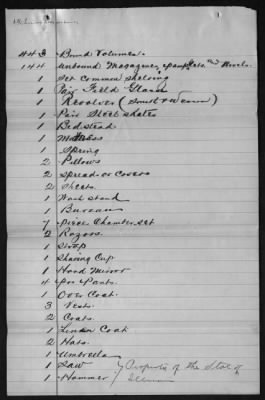 443 Bound Volumes
144 unbound Magazines, pamphlets and Novels.
1 Set Common shelving
1 Pair Field Glasses
1 Revolver (Smith & Wesson)
1 Pair Steel skates
1 Bedstead
1 Mattress
1 Spring
2 Pillows
2 Spreads or Covers
2 Sheets
1 Wash stand
1 Bureau
7 piece Chamber set
2 Razors
1 Strop
1 Shaving Cup
1 Hand Mirror
4 prs Pants
1 Over Coat
3 Vests
2 Coats
1 Linen Coat
2 Hats
1 Umbrella
1 Saw } Property of the State of
1 Hammer }